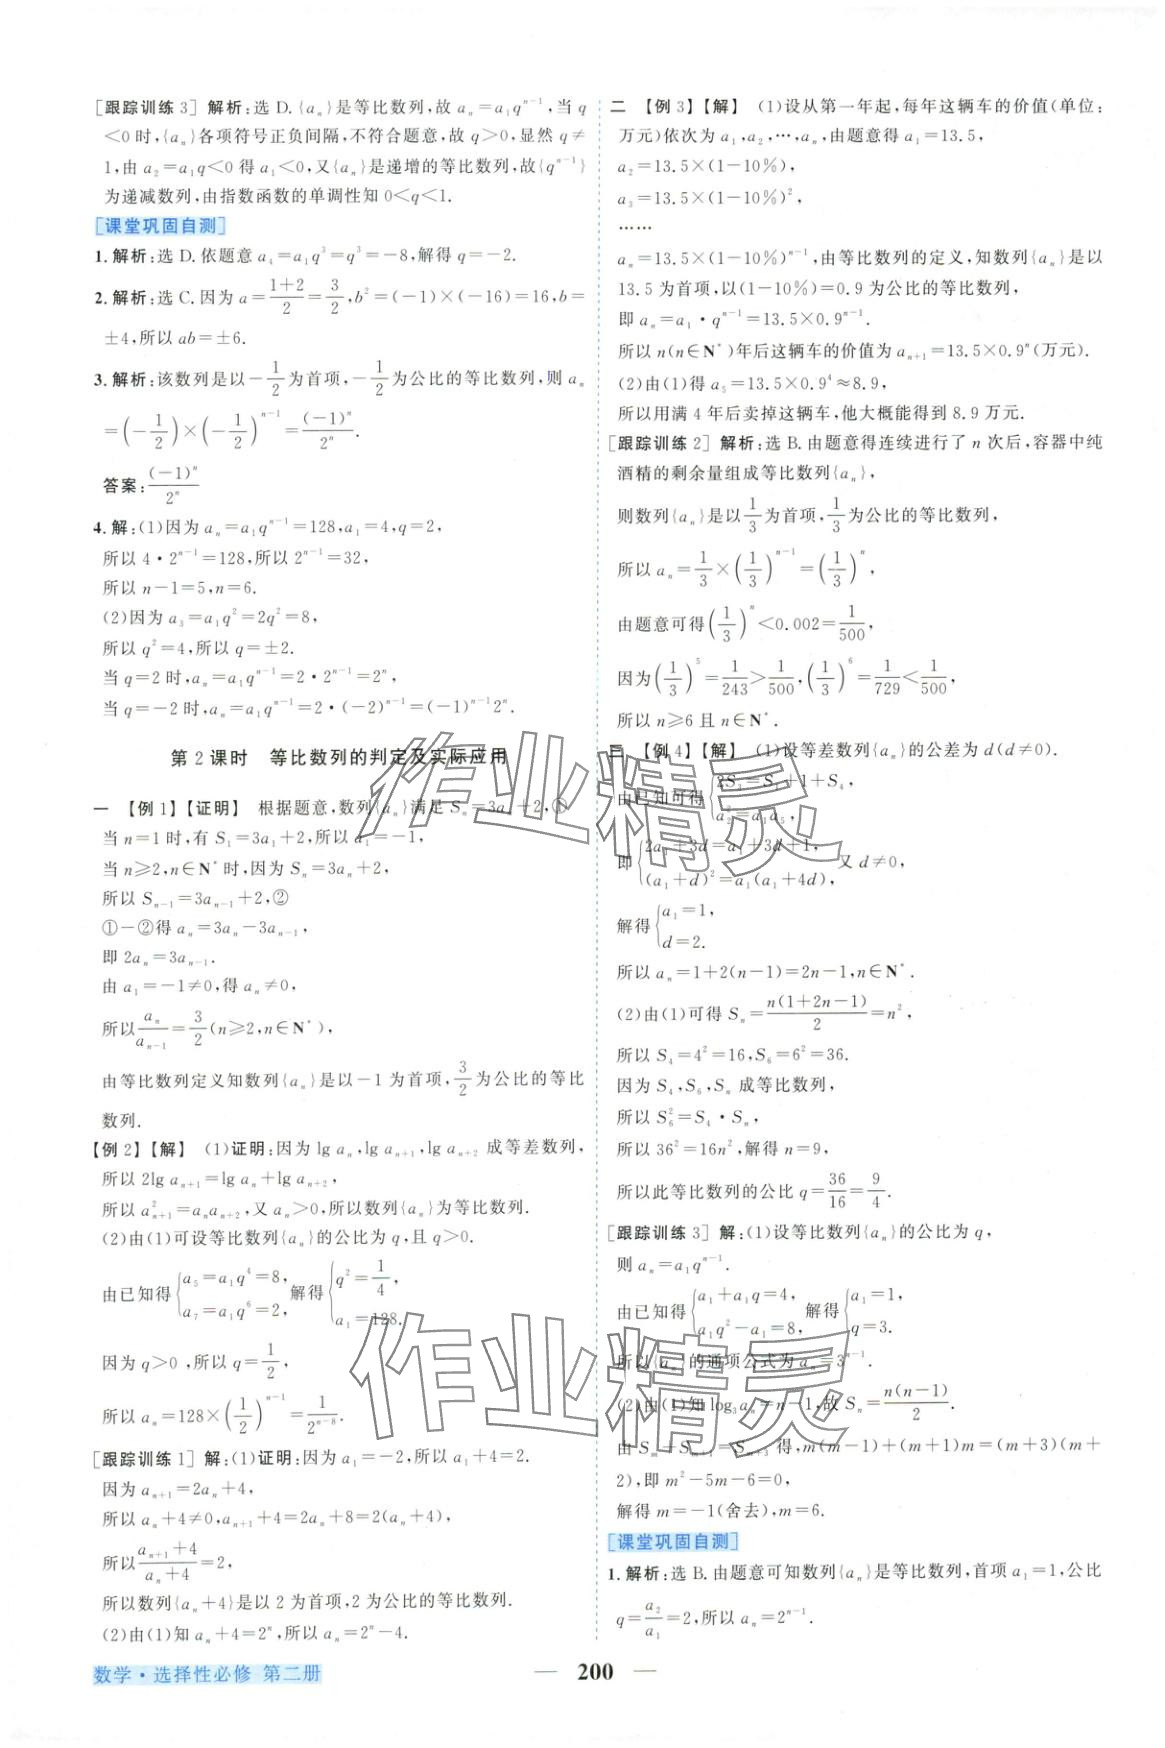 [跟踪训练3] 解析:选 D.{aₙ}是等比数列,故 aₙ=a₁qⁿ⁻¹,当 q
<0时,{aₙ}各项符号正负间隔,不符合题意,故 q>0,显然 q≠
1,由 a₂=a₁q<0 得 a₁<0,又{aₙ}是递增的等比数列,故{qⁿ⁻¹}
为递减数列,由指数函数的单调性知 0<q<1.
[课堂巩固自测]
1.解析:选 D.依题意 a₄=a₁q³=q³=-8,解得 q=-2.
2.解析:选 C.因为 a=(1+2)/2=3/2,b²=(-1)×(-16)=16,b=
±4,所以 ab=±6.
3.解析:该数列是以-1/2为首项,-1/2为公比的等比数列,则 aₙ
=(-1/2)×(-1/2)ⁿ⁻¹=(-1)ⁿ/2ⁿ.
答案:(-1)ⁿ/2ⁿ
4.解:(1)因为 aₙ=a₁qⁿ⁻¹=128,a₁=4,q=2,
所以 4·2ⁿ⁻¹=128,所以 2ⁿ⁻¹=32,
所以 n-1=5,n=6.
(2)因为 a₃=a₁q²=2q²=8,
所以 q²=4,所以 q=±2.
当 q=2 时,aₙ=a₁qⁿ⁻¹=2·2ⁿ⁻¹=2ⁿ,
当 q=-2 时,aₙ=a₁qⁿ⁻¹=2·(-2)ⁿ⁻¹=(-1)ⁿ⁻¹2ⁿ.
第2课时 等比数列的判定及实际应用
一 【例1】【证明】 根据题意,数列{aₙ}满足 Sₙ=3aₙ+2,①
当 n=1 时,有 S₁=3a₁+2,所以 a₁=-1,
当 n≥2,n∈N* 时,因为 Sₙ=3aₙ+2,
所以 Sₙ₋₁=3aₙ₋₁+2,②
①-②得 aₙ=3aₙ-3aₙ₋₁,
即 2aₙ=3aₙ₋₁.
由 a₁=-1≠0,得 aₙ≠0,
所以aₙ/aₙ₋₁=3/2(n≥2,n∈N*),
由等比数列定义知数列{aₙ}是以-1 为首项,3/2为公比的等比
数列.
【例2】【解】 (1)证明:因为 lg aₙ,lg aₙ₊₁,lg aₙ₊₂ 成等差数列,
所以 2lg aₙ₊₁=lg aₙ+lg aₙ₊₂,
所以 a²ₙ₊₁=aₙaₙ₊₂,又 aₙ>0,所以数列{aₙ}为等比数列.
(2)由(1)可设等比数列{aₙ}的公比为 q,且 q>0.
由已知得{a₅=a₁q⁴=8, a₇=a₁q⁶=2, 解得{q²=1/4, a₁=128.
因为 q>0,所以 q=1/2,
所以 aₙ=128×(1/2)ⁿ⁻¹=1/2ⁿ⁻⁸.
[跟踪训练1] 解:(1)证明:因为 a₁=-2,所以 a₁+4=2.
因为 aₙ₊₁=2aₙ+4,
所以 aₙ+4≠0,aₙ₊₁+4=2aₙ+8=2(aₙ+4),
所以(aₙ₊₁+4)/(aₙ+4)=2,
所以数列{aₙ+4}是以 2 为首项,2 为公比的等比数列.
(2)由(1)知 aₙ+4=2ⁿ,所以 aₙ=2ⁿ-4.
二 【例3】【解】 (1)设从第一年起,每年这辆车的价值(单位:
万元)依次为 a₁,a₂,…,aₙ,由题意得 a₁=13.5,
a₂=13.5×(1-10%),
a₃=13.5×(1-10%)²,
……
aₙ=13.5×(1-10%)ⁿ⁻¹,由等比数列的定义,知数列{aₙ}是以
13.5 为首项,以(1-10%)=0.9 为公比的等比数列,
即 aₙ=a₁·qⁿ⁻¹=13.5×0.9ⁿ⁻¹.
所以 n(n∈N*)年后这辆车的价值为 aₙ₊₁=13.5×0.9ⁿ(万元).
(2)由(1)得 a₅=13.5×0.9⁴≈8.9,
所以用满 4 年后卖掉这辆车,他大概能得到 8.9 万元.
[跟踪训练2] 解析:选 B.由题意得连续进行了 n 次后,容器中纯
酒精的剩余量组成等比数列{aₙ},
则数列{aₙ}是以1/3为首项,1/3为公比的等比数列,
所以 aₙ=1/3×(1/3)ⁿ⁻¹=(1/3)ⁿ,
由题意可得(1/3)ⁿ<0.002=1/500,
因为(1/3)⁵=1/243>1/500,(1/3)⁶=1/729<1/500,
所以 n≥6 且 n∈N*.
三 【例4】【解】 (1)设等差数列{aₙ}的公差为 d(d≠0).
由已知可得{2S₃=S₂+1+S₄, a₂²=a₁a₅,
即{2a₁+3d=a₁+3d+1, (a₁+d)²=a₁(a₁+4d), 又 d≠0,
解得{a₁=1, d=2.
所以 aₙ=1+2(n-1)=2n-1,n∈N*.
(2)由(1)可得 Sₙ=n(1+2n-1)/2=n²,
所以 S₄=4²=16,S₆=6²=36.
因为 S₄,S₆,Sₙ 成等比数列,
所以 S₆²=S₄·Sₙ,
所以 36²=16n²,解得 n=9,
所以此等比数列的公比 q=36/16=9/4.
[跟踪训练3] 解:(1)设等比数列{aₙ}的公比为 q,
则 aₙ=a₁qⁿ⁻¹.
由已知得{a₁+a₁q=4, a₁q²-a₁=8, 解得{a₁=1, q=3.
所以{aₙ}的通项公式为 aₙ=3ⁿ⁻¹.
(2)由(1)知 log₃aₙ=n-1,故 Sₙ=n(n-1)/2.
由 Sₘ+Sₘ₊₁=Sₘ₊₃ 得,m(m-1)+(m+1)m=(m+3)(m+
2),即 m²-5m-6=0,
解得 m=-1(舍去),m=6.
[课堂巩固自测]
1.解析:选 B.由题意可知数列{aₙ}是等比数列,首项 a₁=1,公比
q=a₂/a₁=2,所以 aₙ=2ⁿ⁻¹.
作业精灵
作业精灵
数学·选择性必修 第二册
— 200 —